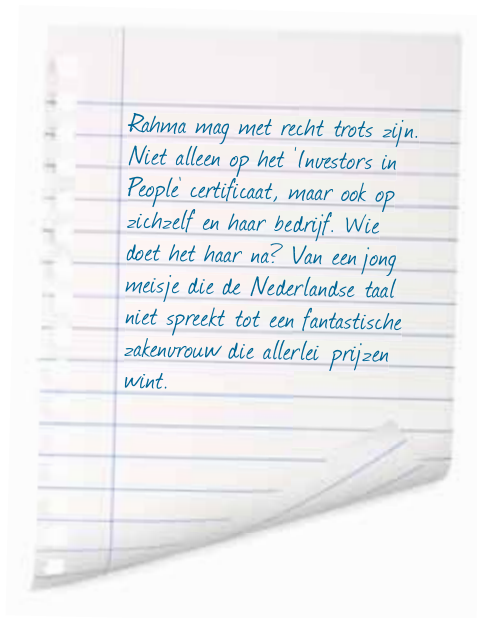 Rahma mag met recht trots zijn.
Niet alleen op het 'Investors in
People' certificaat, maar ook op
zichzelf en haar bedrijf. Wie
doet het haar na? Van een jong
meisje die de Nederlandse taal
niet spreekt tot een fantastische
zakenvrouw die allerlei prijzen
wint.